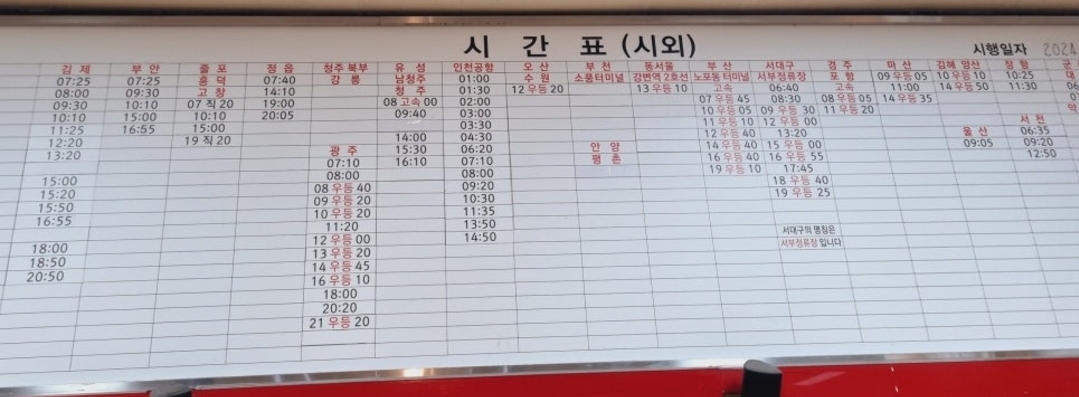 시 간 표 (시외)
시행일자 2024
김 제 부 안 줄 포 정 읍 청주북부 유 성 인천공항 오 산 부 천 동서울 부 산 서대구 경 주 마 산 김해 양산 정 항
07:25 07:25 흥 덕 07:40 강 릉 남청주 01:00 수 원 소풍터미널 강변역 2호선 노포동터미널 서부정류장 포 항 09 우등 05 10 우등 10 10:25
08:00 09:30 고 창 14:10 청 주 01:30 12 우등 20 13 우등 10 고속 06:40 고속 11:00 14 우등 50 11:30
09:30 10:10 07 직 20 19:00 08 고속 00 02:00 07 우등 45 08:30 08 우등 05 14 우등 35
10:10 15:00 10:10 20:05 09:40 03:00 10 우등 05 09 우등 30 11 우등 20
11:25 16:55 15:00 03:30 11 우등 10 12 우등 00 서 천
12:20 19 직 20 14:00 04:30 12 우등 40 13:20 울 산 06:35
13:20 광 주 15:30 06:20 안 양 14 우등 40 15 우등 00 09:05 09:20
07:10 16:10 07:10 평 촌 16 우등 40 16 우등 55 12:50
15:00 08:00 08:00 19 우등 10 17:45
15:20 08 우등 40 09:20 18 우등 40
15:50 09 우등 20 10:30 19 우등 25
16:55 10 우등 20 11:35
11:20 13:50
18:00 12 우등 00 14:50 서대구의 명칭은
18:50 13 우등 20 서부정류장 입니다
20:50 14 우등 45
16 우등 10
18:00
20:20
21 우등 20